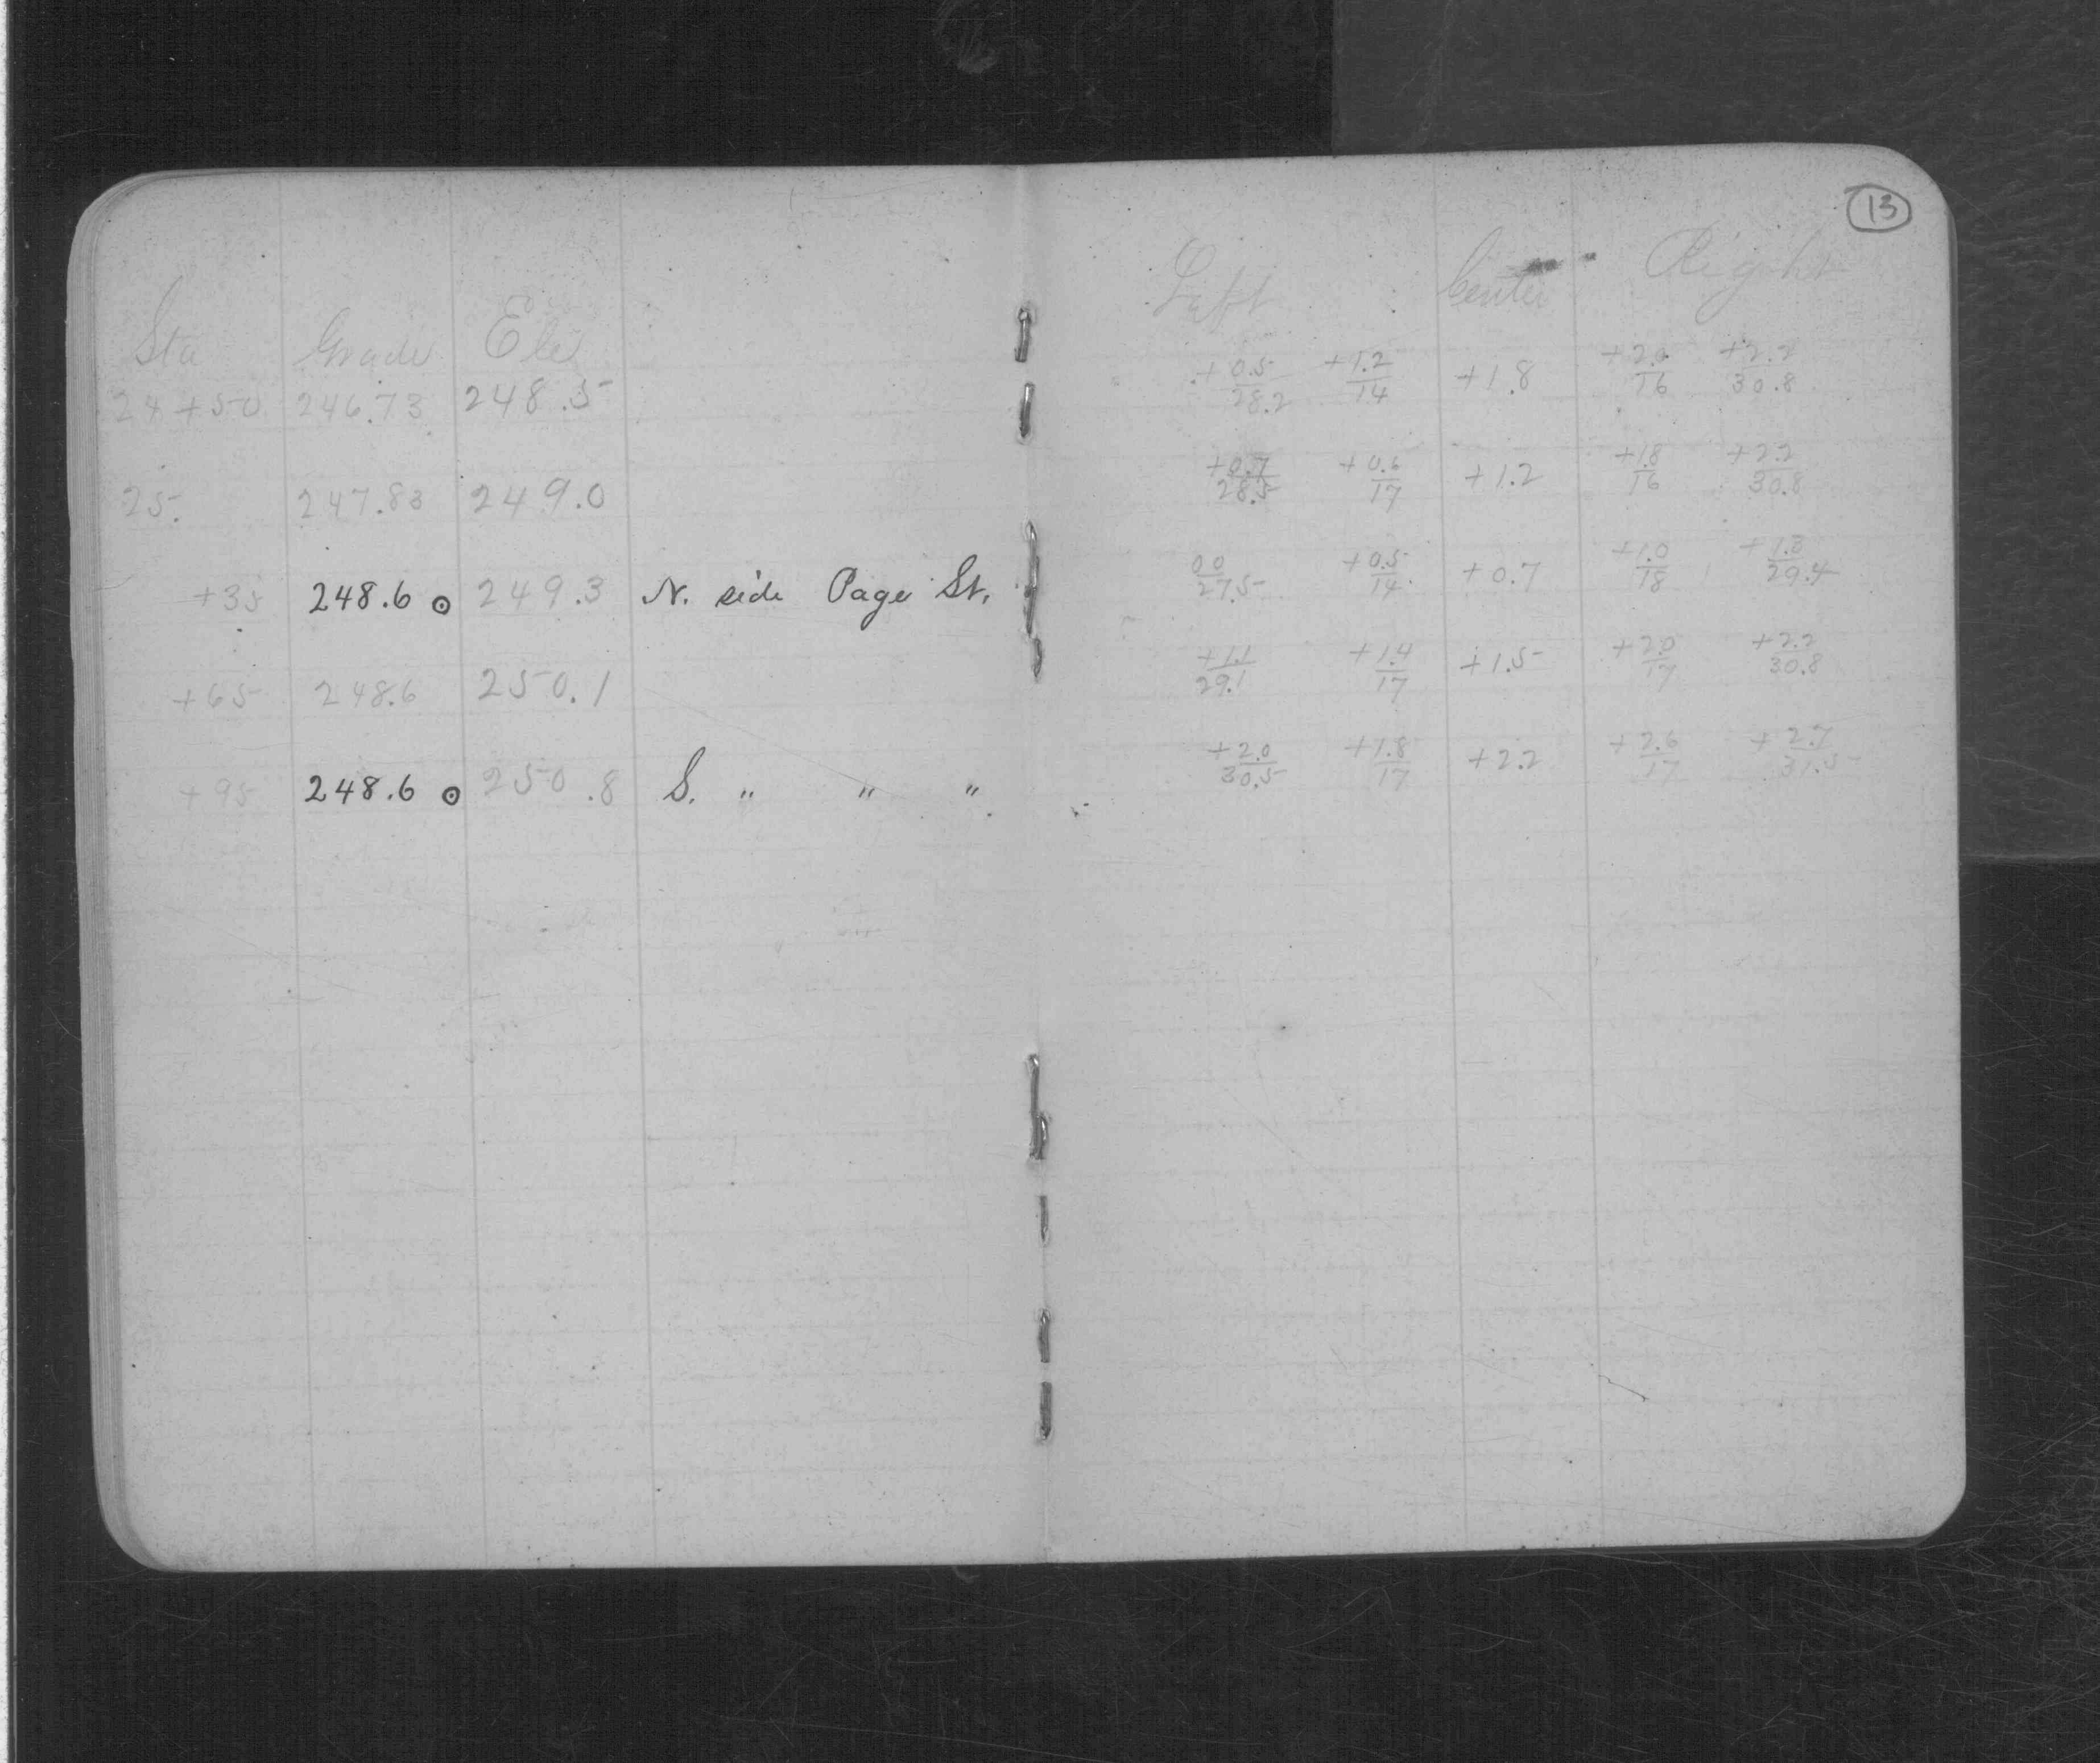 13
Sta Grade Ele Left Center Right
24+50 246.73 248.5 +0.5/28.2 +1.2/14 +1.8 +2.0/16 +2.2/30.8
25. 247.83 249.0 +0.7/28.5 +0.6/17 +1.2 +1.8/16 +2.2/30.8
+35 248.6 ⊙ 249.3 N. side Page St. 0.0/27.5 +0.5/14 +0.7 +1.0/18 +1.3/29.4
+65 248.6 250.1 +1.1/29.1 +1.4/17 +1.5 +2.0/17 +2.2/30.8
+95 248.6 ⊙ 250.8 S. " " " +2.0/30.5 +1.8/17 +2.2 +2.6/17 +2.7/31.5